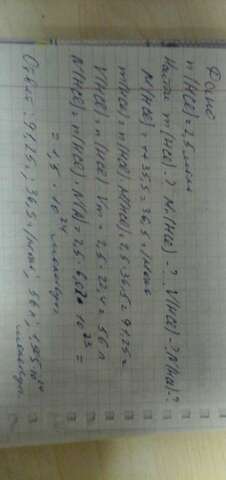 Дано
n(HCl) = 2,5 моль
Найти m(HCl)-? M(HCl)-? V(HCl)-? N(HCl)-?
M(HCl) = 1+35,5 = 36,5 г/моль
m(HCl) = n(HCl) · M(HCl) = 2,5 · 36,5 = 91,25 г
V(HCl) = n(HCl) · Vm = 2,5 · 22,4 = 56 л
N(HCl) = n(HCl) · N(A) = 2,5 · 6,02 · 10²³ =
= 1,5 · 10²⁴ молекул
Ответ: 91,25 г; 36,5 г/моль; 56 л; 10²⁴
молекул